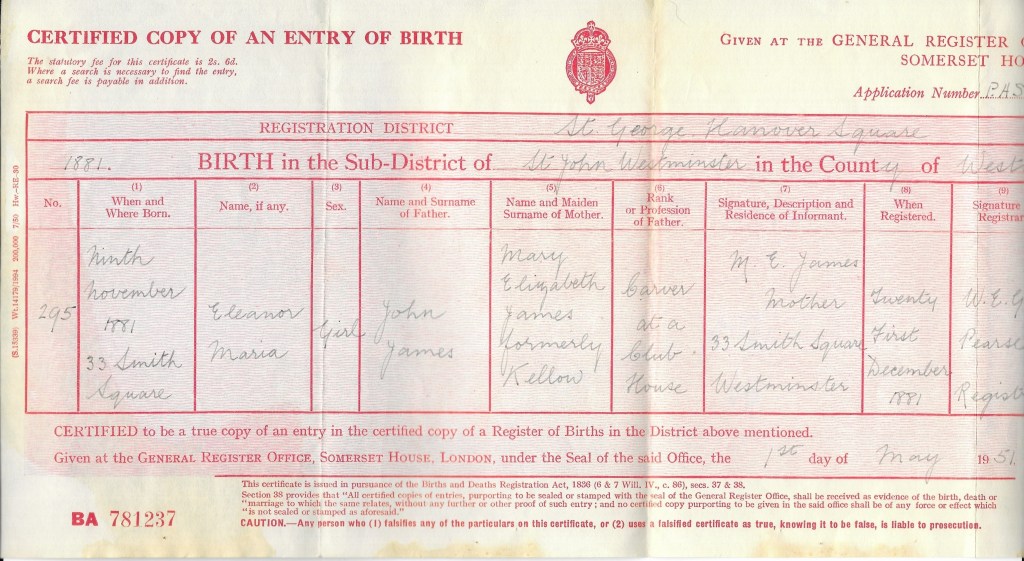 CERTIFIED COPY OF AN ENTRY OF BIRTH
GIVEN AT THE GENERAL REGISTER
SOMERSET HO
The statutory fee for this certificate is 2s. 6d.
Where a search is necessary to find the entry,
a search fee is payable in addition.
Application Number P.A.S
REGISTRATION DISTRICT St George Hanover Square
1881. BIRTH in the Sub-District of St John Westminster in the County of West
No.
(1)
When and
Where Born.
(2)
Name, if any.
(3)
Sex.
(4)
Name and Surname
of Father.
(5)
Name and Maiden
Surname of Mother.
(6)
Rank
or Profession
of Father.
(7)
Signature, Description and
Residence of Informant.
(8)
When
Registered.
(9)
Signature
Registrar
295
Ninth
November
1881
33 Smith
Square
Eleanor
Maria
Girl
John
James
Mary
Elizabeth
James
formerly
Kellow
Carver
at a
Club
House
M. E. James
Mother
33 Smith Square
Westminster
Twenty
First
December
1881
W. E. G
Pearse
Regist
CERTIFIED to be a true copy of an entry in the certified copy of a Register of Births in the District above mentioned.
Given at the GENERAL REGISTER OFFICE, SOMERSET HOUSE, LONDON, under the Seal of the said Office, the 1st day of May 1951.
This certificate is issued in pursuance of the Births and Deaths Registration Act, 1836 (6 & 7 Will. IV., c. 86), secs. 37 & 38.
Section 38 provides that "All certified copies of entries, purporting to be sealed or stamped with the seal of the General Register Office, shall be received as evidence of the birth, death or
"marriage to which the same relates, without any further or other proof of such entry; and no certified copy purporting to be given in the said office shall be of any force or effect which
"is not sealed or stamped as aforesaid."
CAUTION.—Any person who (1) falsifies any of the particulars on this certificate, or (2) uses a falsified certificate as true, knowing it to be false, is liable to prosecution.
BA 781237